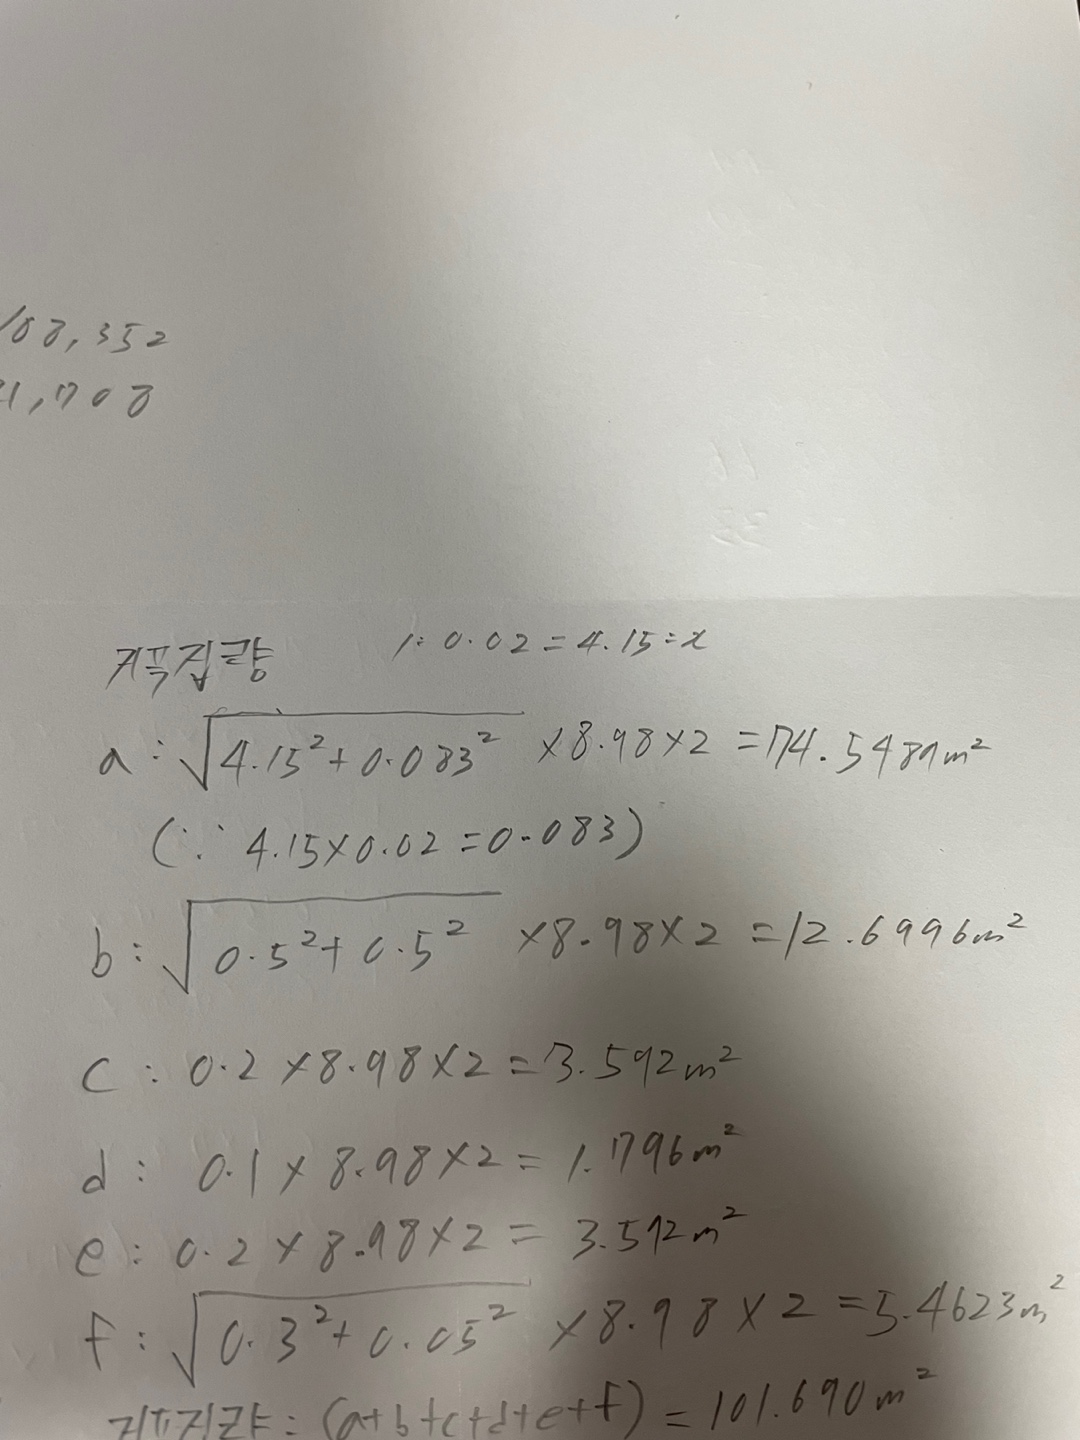 108,352
21,708
거푸집량 1:0.02=4.15:x
a: √4.15²+0.083² ×8.98×2 =74.5489m²
(∵ 4.15×0.02=0.083)
b: √0.5²+0.5² ×8.98×2 =12.6996m²
c: 0.2×8.98×2=3.592m²
d: 0.1×8.98×2=1.796m²
e: 0.2×8.98×2= 3.592m²
f: √0.3²+0.05² ×8.98×2 =5.4623m²
거푸집량: (a+b+c+d+e+f) =101.690m²